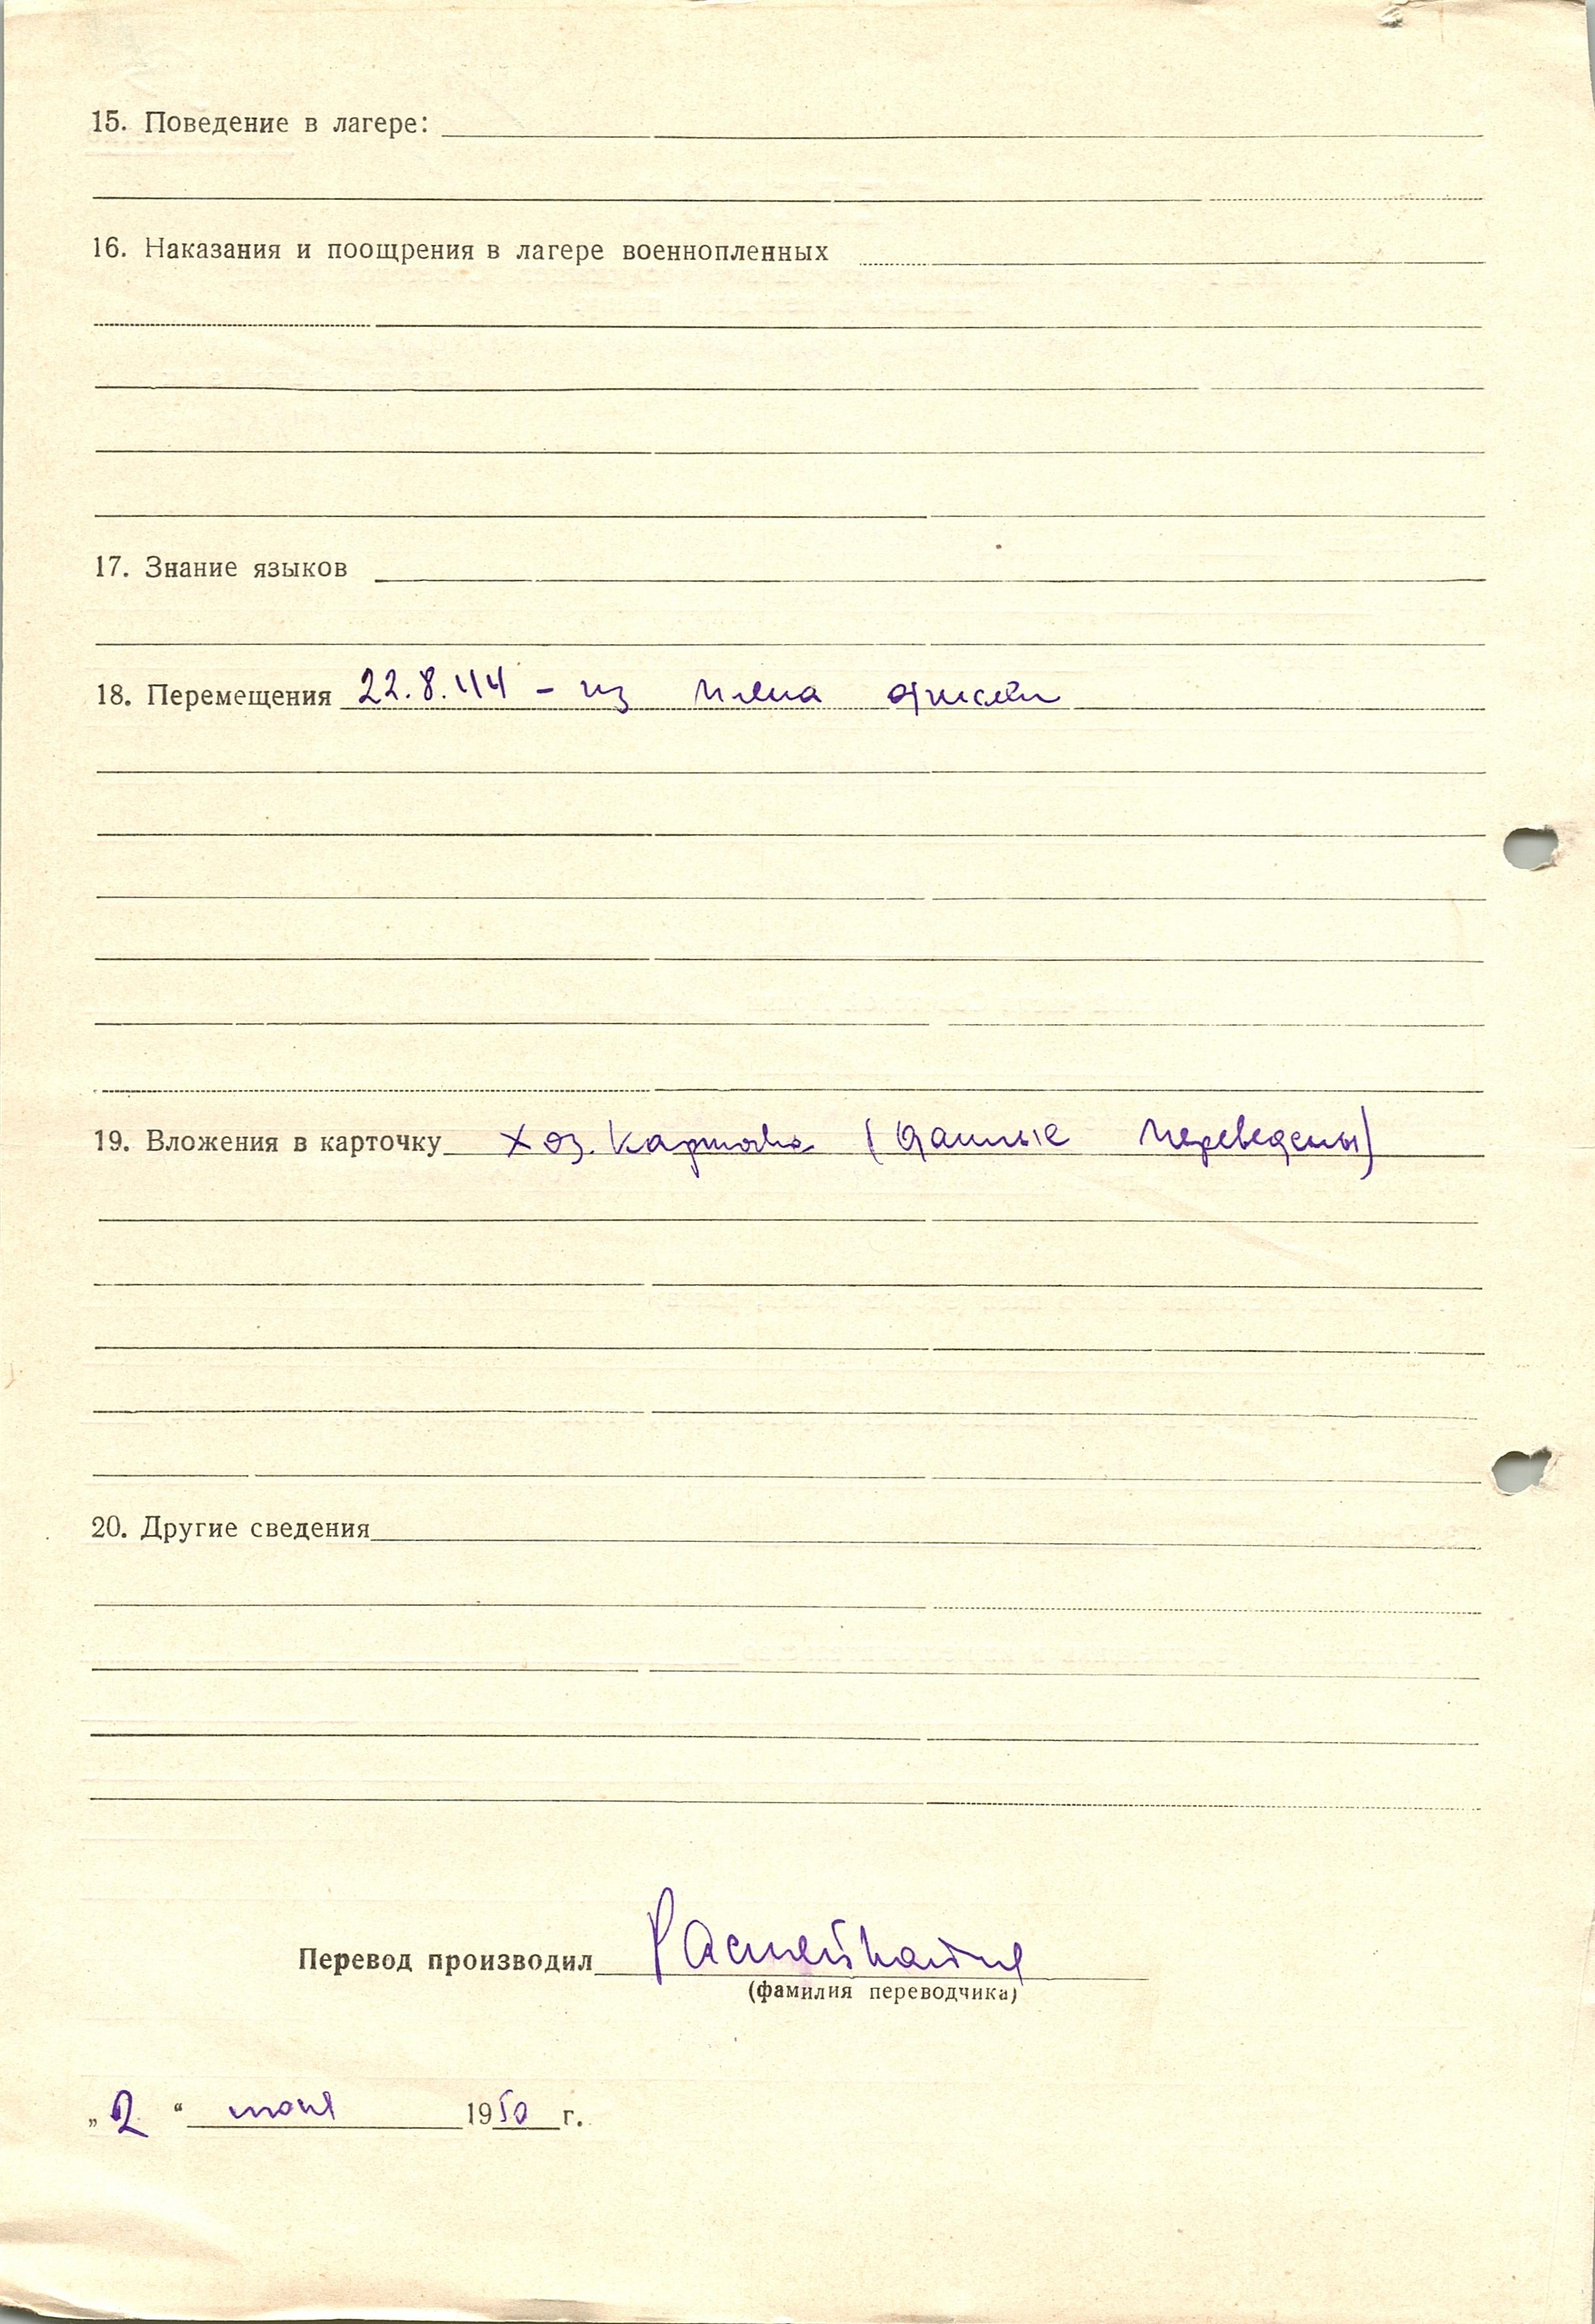 15. Поведение в лагере:
16. Наказания и поощрения в лагере военнопленных
17. Знание языков
18. Перемещения 22.8.44 – из плена
19. Вложения в карточку хоз. карточка (данные переведены)
20. Другие сведения
Перевод производил
(фамилия переводчика)
„2“ 1950 г.